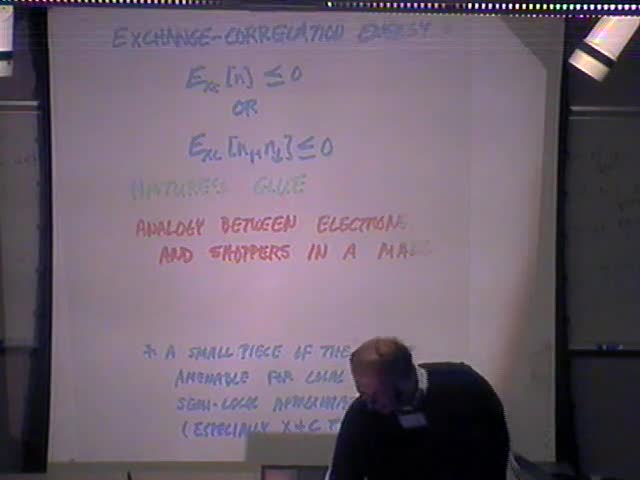 EXCHANGE-CORRELATION ENERGY
Exc [n] ≤ 0
OR
Exc [n↑, n↓] ≤ 0
NATURE'S GLUE
ANALOGY BETWEEN ELECTRONS
AND SHOPPERS IN A MALL
* A SMALL PIECE OF THE
AMENABLE FOR LOCAL
SEMI-LOCAL
(ESPECIALLY X + C